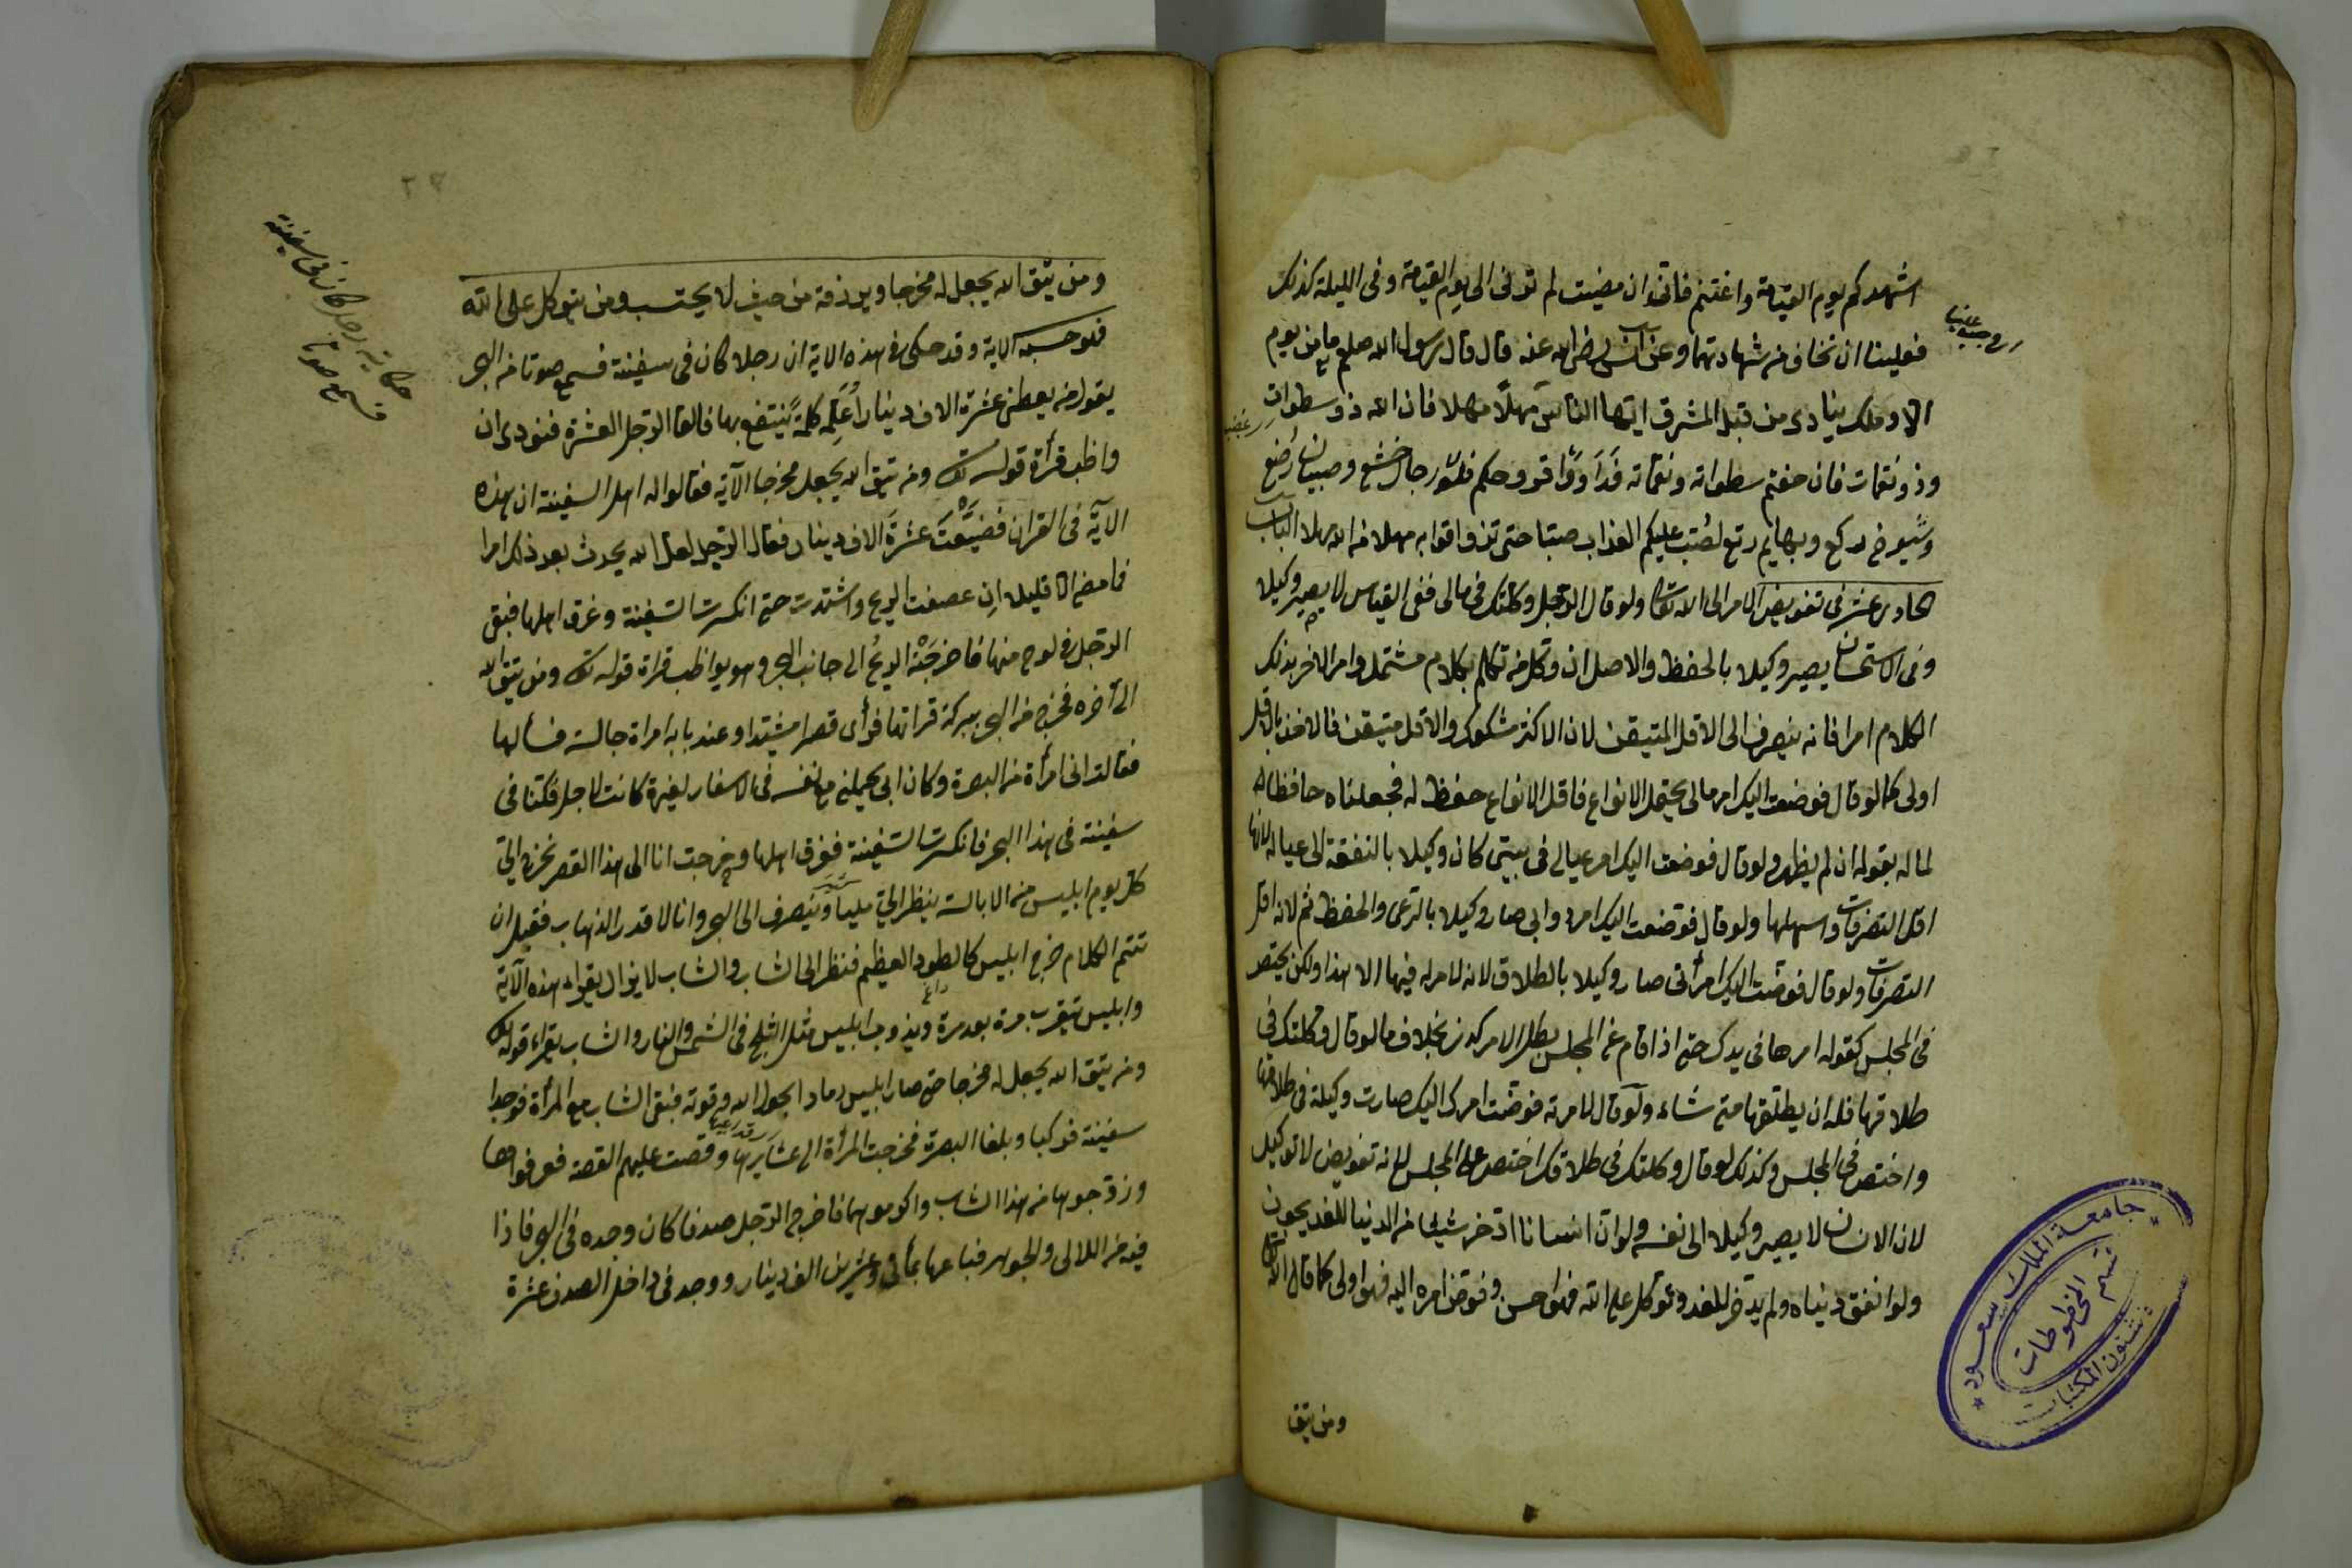 اشهدكم يوم القيمة واغتنم فانى ان مضيت لم توفى الى يوم القيمة وفى الليلة كذلك
فعلينا ان نخاف من شهادتهما وعن انس رضى الله عنه قال قال رسول الله صلعم ما من يوم
الا وملك ينادى من قبل المشرق ايتها الناس مهلا مهلا فان الله ذو سطوات
وذو نقمات فان خفتم سطواته ونقماته فداووا قروحكم فلولا رجال خشع وصبيان رضع
وشيوخ ركع وبهايم رتع لصب عليكم العذاب صبا حتى تذواقوا به مهلا من الله مهلا الباب
الحادى عشر فى تفويض الامر الى الله تعالى ولو قال الرجل وكلتك فى مالى ففى القياس لا يصير وكيلا
وفى الاستحسان يصير وكيلا بالحفظ والاصل ان وكل من تكلم بكلام مشتمل وامر الاخر بذلك
الكلام امرا فانه ينصرف الى الاقل المتيقن لان الاكثر مشكوك والاقل متيقن فالاخذ بالاقل
اولى كما لو قال فوضت اليك امر مالى يحتمل الانواع فاقل الانواع حفظ له فجعلناه حافظا له
لماله بقوله ان لم يظهر ولو قال فوضت اليك امر عيالى فى بيتى كان وكيلا بالنفقة الى عياله لانها
اقل التصرفات واسهلها ولو قال فوضت اليك امر دوابى صار وكيلا بالرعى والحفظ ثم لانه اقل
التصرفات ولو قال فوضت اليك امر امرأتى صار وكيلا بالطلاق لانه لا امر له فيها الا هذا ولكن يختصر
فى المجلس كقوله امرها فى يدك حتى اذا قام عن المجلس بطل الامر كذا بخلاف ما لو قال وكلتك فى
طلاقها فله ان يطلقها متى شاء ولو قال لامرته فوضت امرك اليك صارت وكيلة فى طلاقها
واختصر فى المجلس وكذلك لو قال وكلتك فى طلاقك اختصر على المجلس لانه تفويض لا توكيل
لان الانسان لا يصير وكيلا الى نفسه ولو ان انسانا ادخر شيئا من الدنيا للغد يجوز
ولو انفق دنياه ولم يدخر للغد وتوكل على الله فهو احسن وفوض امره اليه فهو اولى كما قال الله تعالى
ومن يتق
ومن يتق الله يجعل له مخرجا ويرزقه من حيث لا يحتسب ومن يتوكل على الله
فهو حسبه الاية وقد حكى فى هذه الاية ان رجلا كان فى سفينة فسمع صوتا من البحر
يقول من يعطنى عشرة الاف دينارا اعلمه كلمة ينتفع بها فالقا الرجل العشرة فنودى ان
واظب قرأة قوله تعالى ومن يتق الله يجعل مخرجا الآية فقالوا له اهل السفينة ان هذه
الآية فى القران فضيعت عشرة الاف دينار فقال الرجل لعل الله يحدث بعد ذلك امرا
فامضى الا قليلا ان عصفت الريح واشتدت حتى انكسرت السفينة وغرق اهلها فبقى
الرجل فى لوح منها فاخرجته الريح الى جانب البحر وهو يواظب قراة قوله تعالى ومن يتق الله
الى آخره فخرج من البحر ببركة قرأتها فرأى قصرا مشيدا وعند بابه امراة جالسة فسألها
فقالت انى امرأة من البصرة وكان ابى يحملنى مع نفسه فى الاسفار لغيرة كانت لاجل فكنا فى
سفينة فى هذا البحر فانكسرت السفينة فغرق اهلها وخرجت انا الى هذا القصر نخرج الى
كل يوم ابليس من الابالسة ينظر الى مليا وينصرف الى البحر وانا لا اقدر الذهاب فقبل ان
تتم الكلام خرج ابليس كالطود العظيم فنظر الى الشاب والشاب لا يزال يقراء هذه الآية
وابليس يتقرب مرة بعد مرة ويذوب ابليس مثل الثلج فى الشمس والنار والشاب يقراء قوله تعالى
ومن يتق الله يجعل له مخرجا حتى صار ابليس رمادا بحول الله وقوته فبقى الشاب مع المرأة فوجدا
سفينة فركبا وبلغا البصرة فخرجت المرأة الى عشايرها وقصت عليهم القصة فعرفوا معها
وزوجوها من هذا الشاب واكرموهما فاخرج الرجل صدفا كان وجده فى البحر فاذا
فيه من اللالى والجوهر فباعها بمأتى وعشرين الف دينار ووجد فى داخل الصدف عشرة
حكاية رجل كان فى سفينة
فسمع صوتا
جامعة الملك سعود
قسم المخطوطات
شئون المكتبات